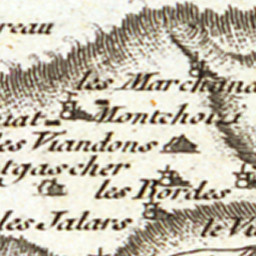 reau
les Marchand
uat Montchoisi
les Viandons
tgascher
les Bordes
les Jalars le Vi